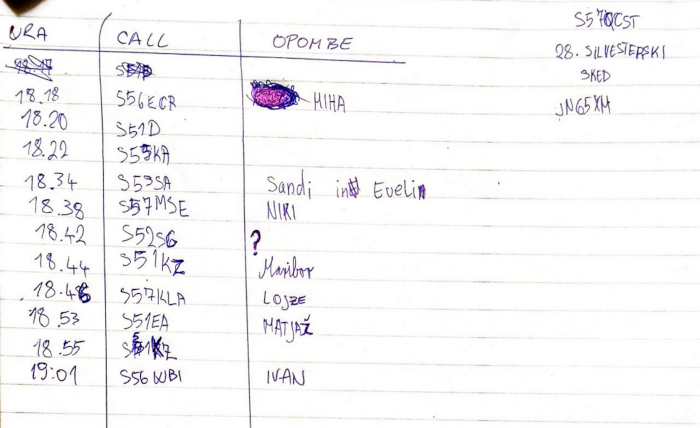 URA CALL OPOMBE
18.18 S56ECR MIHA
18.20 S51D
18.22 S55KA
18.34 S53SA Sandi in Evelin
18.38 S57MSE NIKI
18.42 S52SG ?
18.44 S51KZ Maribor
18.46 S57KLA LOJZE
18.53 S51EA MATJAŽ
18.55
19:01 S56WBI IVAN
S57QCST
28. SILVESTERSKI
SKED
JN65XM